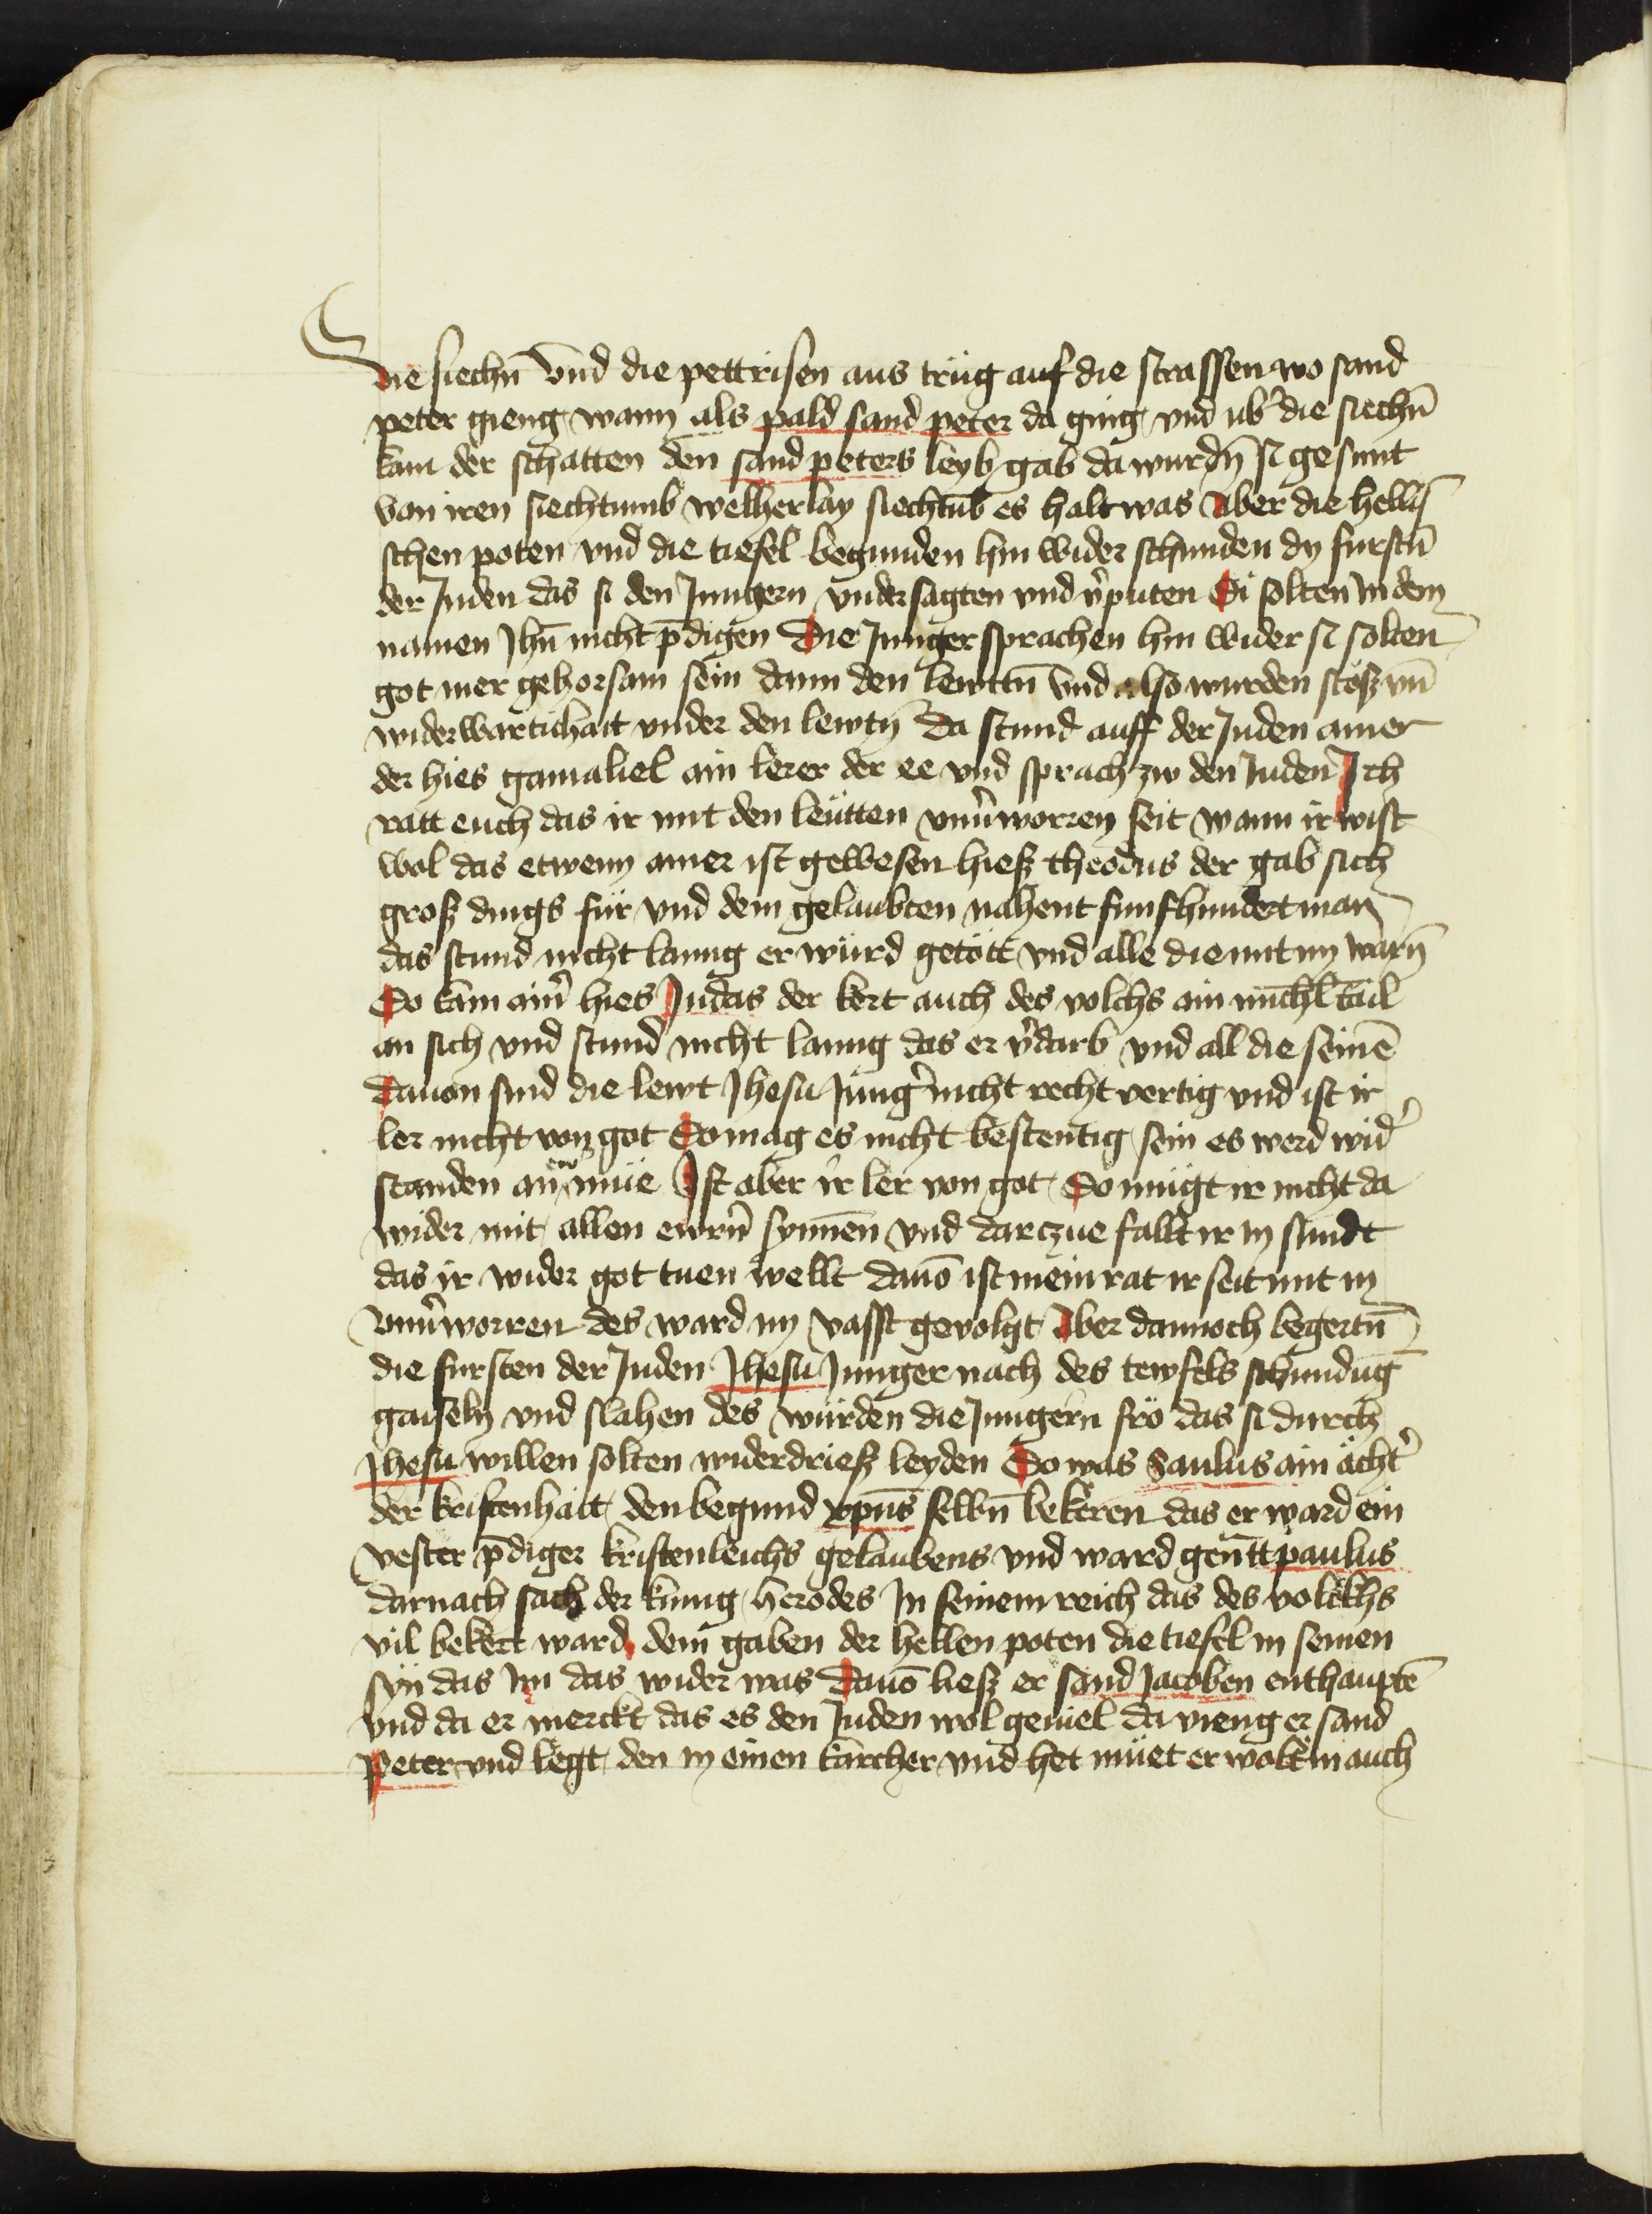 die siechn̄ vnd die pettrisen aus trüg auf die strassen wo sand
peter gieng wann als pald sand peter da ging vnd ub᷑ die siechn̄
kam der schatten den sand peters leyb gab da wurdn̄ si gesunt
von iren siechtumb welherlay siechtūb es halt was Aber die hellī
schen poten vnd die tiefel begunden hin wider schunden dy furstn̄
der Juden das si den Jungern vndersagten vnd v᷑puten Si solten in dem
namen Jhū nicht p̄digen Die Junger sprachen hin wider si solten
got mer gehorsam sein dann den lewttn̄ vnd also wurden stösz vn̄
widerwartichait vnder den lewtn̄ Da stund auff der Juden ainer
der hies gamaliel ain lerer der ee vnd sprach zw den Juden Ich
ratt euch das ir mit den leütten vnu᷑worren seit wann ir wist
wol das etwenn ainer ist gewesen hiesz theodus der gab sich
grosz dings für vnd dem gelaubten nahent funfhundert man
das stund nicht lanng er würd getött vnd alle die mit im warn̄
Do kam ain᷑ hies Judas der kert auch des volchs ain michl tail
an sich vnd stund nicht lanng das er v᷑darb vnd all die seinē
Dauon sind die lewt Jhesu Jung᷑ nicht recht vertig vnd ist ir
ler nicht von got So mag es nicht bestentig sein es werd wid᷑
standen an ew᷑ müe Ist aber ir ler von got So mügt ir nicht da
wider mit allen ewrn̄ synnen vnd darczue fallt ir in sundt
das ir wider got tuen wellt dauō ist mein rat ir seit mit in
vnu᷑worren des ward im vasst geuolgt Aber dannoch begertn̄
die fursten der Juden Jhesu Junger nach des tewfels schundūg
gaiseln vnd slahen des würden die Jungern frö das si durch
Jhesu willen solten widerdriesz leyden Do was Saulus ain ächt᷑
der kristenhait den begund xpūs selbn̄ bekeren das er ward ein
vester p̄diger kristenleichs gelaubens vnd ward gen̄tt paulus
darnach sach der künig herodes In seinem reich das des volckhs
vil bekert ward dem gaben der hellen poten die tiefel in seinen
syn das im das wider was dauō liesz er sand Jacoben enthauptē
vnd da er merckt das es den Juden wol geuiel da vieng er sand
Peter vnd legt den in einen kärcher vnd het müet er wolt in auch